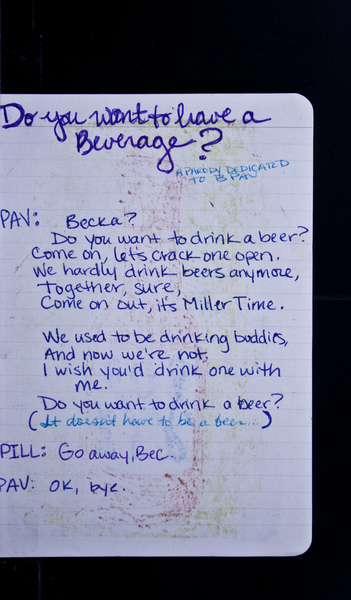 Do you want to have a
Beverage?
A PARODY DEDICATED
TO B PAV
PAV: Becka?
Do you want to drink a beer?
Come on, let's crack one open.
We hardly drink beers anymore,
Together, sure,
Come on out, it's Miller Time.
We used to be drinking buddies,
And now we're not.
I wish you'd drink one with
me.
Do you want to drink a beer?
(It doesn't have to be a beer...)
PILL: Go away, Bec.
PAV: OK, bye.